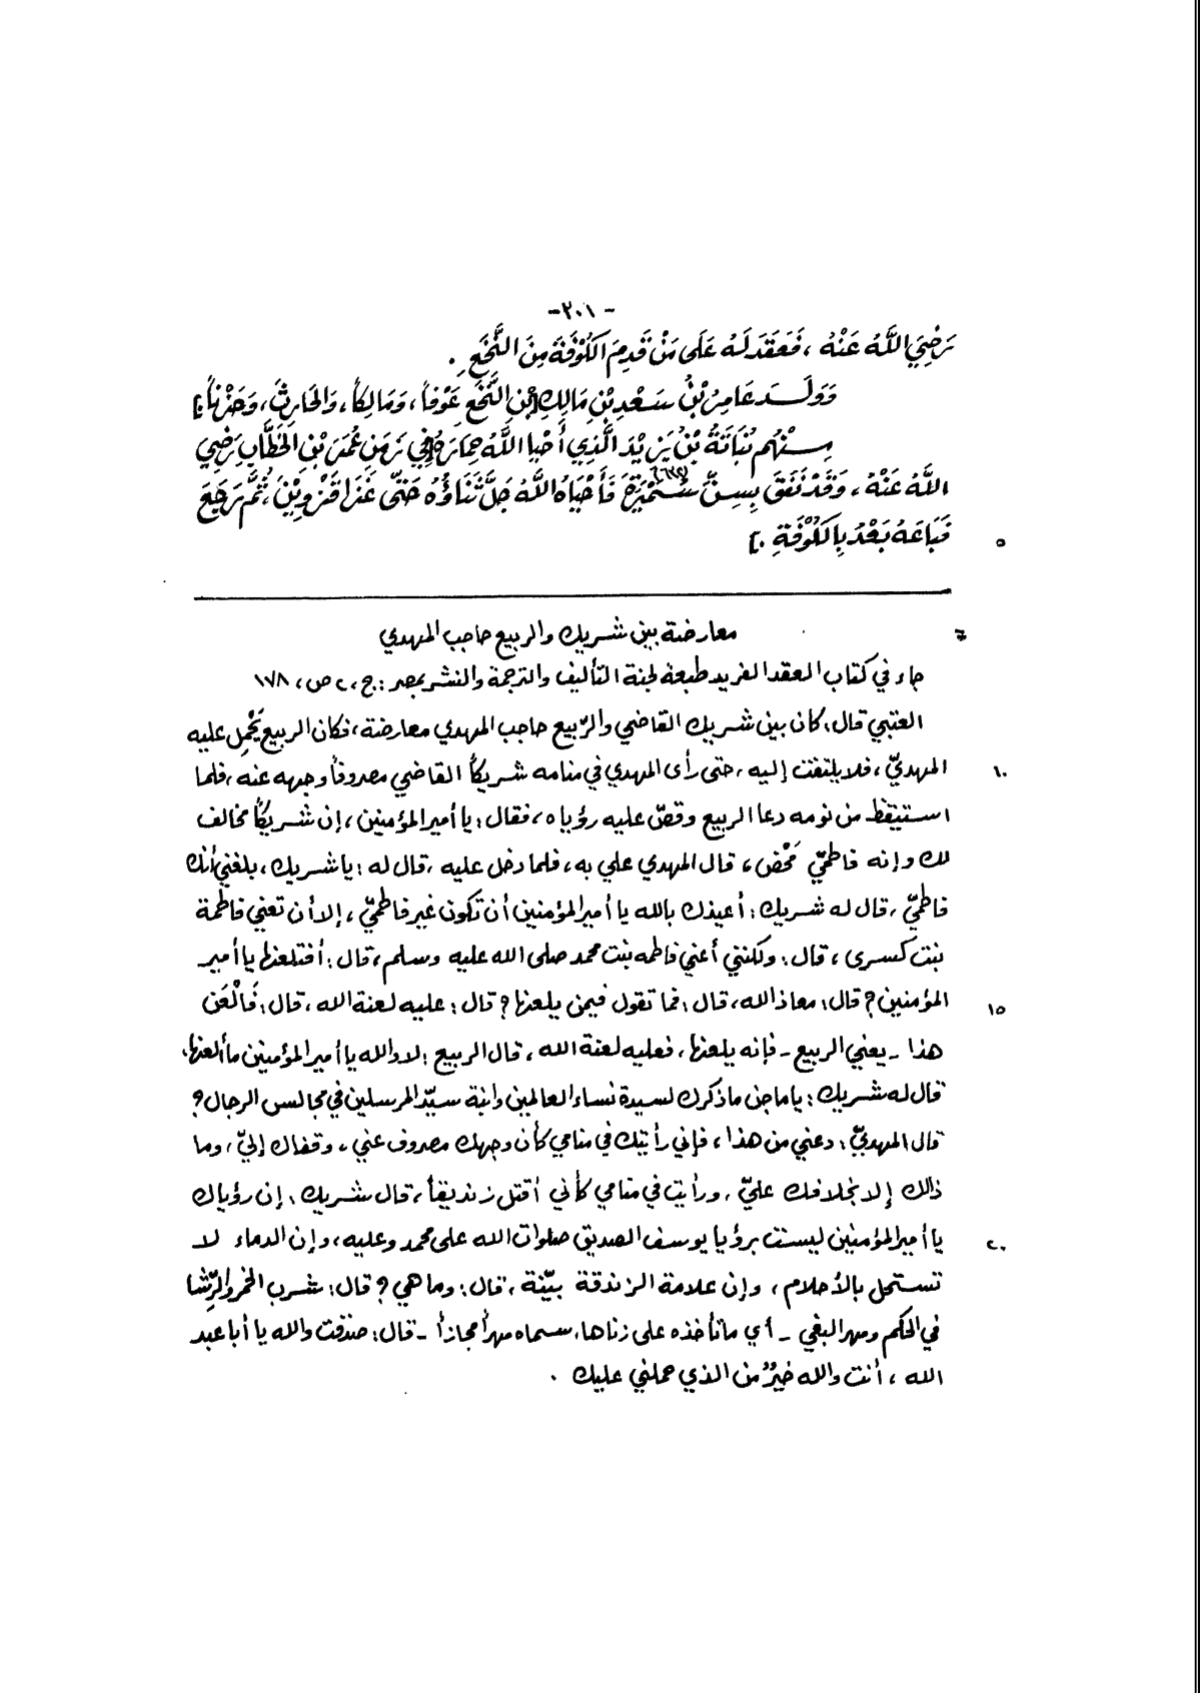 -٢٠١-
رَضِيَ اللَّهُ عَنْهُ ، فَعَقَدَ لَهُ عَلَى مَنْ قَدِمَ الكُوْفَةَ مِنَ النَّخَعِ .
وَوَلَـدَ عَامِرُ بْنُ سَعْدِ بْنِ مَالِكِ بْنِ النَّخَعِ عَوْفاً ، وَمَالِكاً ، وَالحَارِثَ ، وَحَزْناً [.]
مِـنْهُم نُبَاتَةُ بْنُ يَزِيْدَ الَّذِي أَحْيَا اللَّهُ حِمَارَهُ فِي زَمَنِ عُمَرَ بْنِ الخَطَّابِ رَضِيَ
اللَّهُ عَنْهُ ، وَقَدْ نَفَقَ بِسِنِّ سُمَيْرَةَ فَأَحْيَاهُ اللَّهُ جَلَّ ثَنَاؤُهُ حَتَّى غَزَا قَزْوِيْنَ ، ثُمَّ رَجَعَ
٥ فَبَاعَهُ بَعْدُ بِالكُوْفَةِ [.]
= معارضة بين شـريك والربيع حاجب المهدي
جاء في كتاب العقد الفريد طبعة لجنة التأليف والترجمة والنشر بمصر : ج ، ٢ ص ، ١٧٨
العتبي قال : كان بين شـريك القاضي والرّبيع حاجب المهدي معارضة ، فكان الربيع يَحْمِل عليه
١٠ المهديّ ، فلا يلتفت إليه ، حتى رأى المهدي في منامه شـريكاً القاضي مصروفاً وجهه عنه ، فلما
اسـتيقظ من نومه دعا الربيع وقصّ عليه رؤياه ، فقال : يا أمير المؤمنين ، إن شـريكاً مخالف
لك وإنه فاطميّ مَحْض ، قال المهدي علي به ، فلما دخل عليه ، قال له : يا شـريك ، بلغني أنك
فاطميّ ، قال له شـريك : أعيذك بالله يا أمير المؤمنين أن تكون غير فاطميّ ، إلا أن تعني فاطمة
بنت كسرى ، قال : ولكنني أعني فاطمه بنت محمد صلى الله عليه وسلم ، قال : أفتلعنها يا أمير
١٥ المؤمنين ؟ قال : معاذ الله ، قال : فما تقول فيمن يلعنها ؟ قال : عليه لعنة الله ، قال : فَالْعَن
هذا - يعني الربيع - فإنه يلعنها ، فعليه لعنة الله ، قال الربيع : لا والله يا أمير المؤمنين ما ألعنها ،
قال له شـريك : يا ماجن ما ذكرك لسيدة نساء العالمين وابنة سيّد المرسلين في مجالس الرجال ؟
قال المهديّ : دعني من هذا ، فإني رأيتك في منامي كأن وجهك مصروف عني ، وقفاك إليّ ، وما
ذلك إلا بخلافك عليّ ، ورأيت في منامي كأني أقتل زنديقاً ، قال شـريك : إن رؤياك
٢٠ يا أمير المؤمنين ليست برؤيا يوسف الصديق صلوات الله على محمد وعليه ، وإن الدماء لا
تستحل بالأحلام ، وإن علامة الزندقة بيّنة ، قال : وما هي ؟ قال : شـرب الخمر والرِّشا
في الحكم ومهر البغي - أي ما تأخذه على زناها ، سـماه مهراً مجازاً - قال : صدقت والله يا أبا عبد
الله ، أنت والله خيرٌ من الذي حملني عليك .